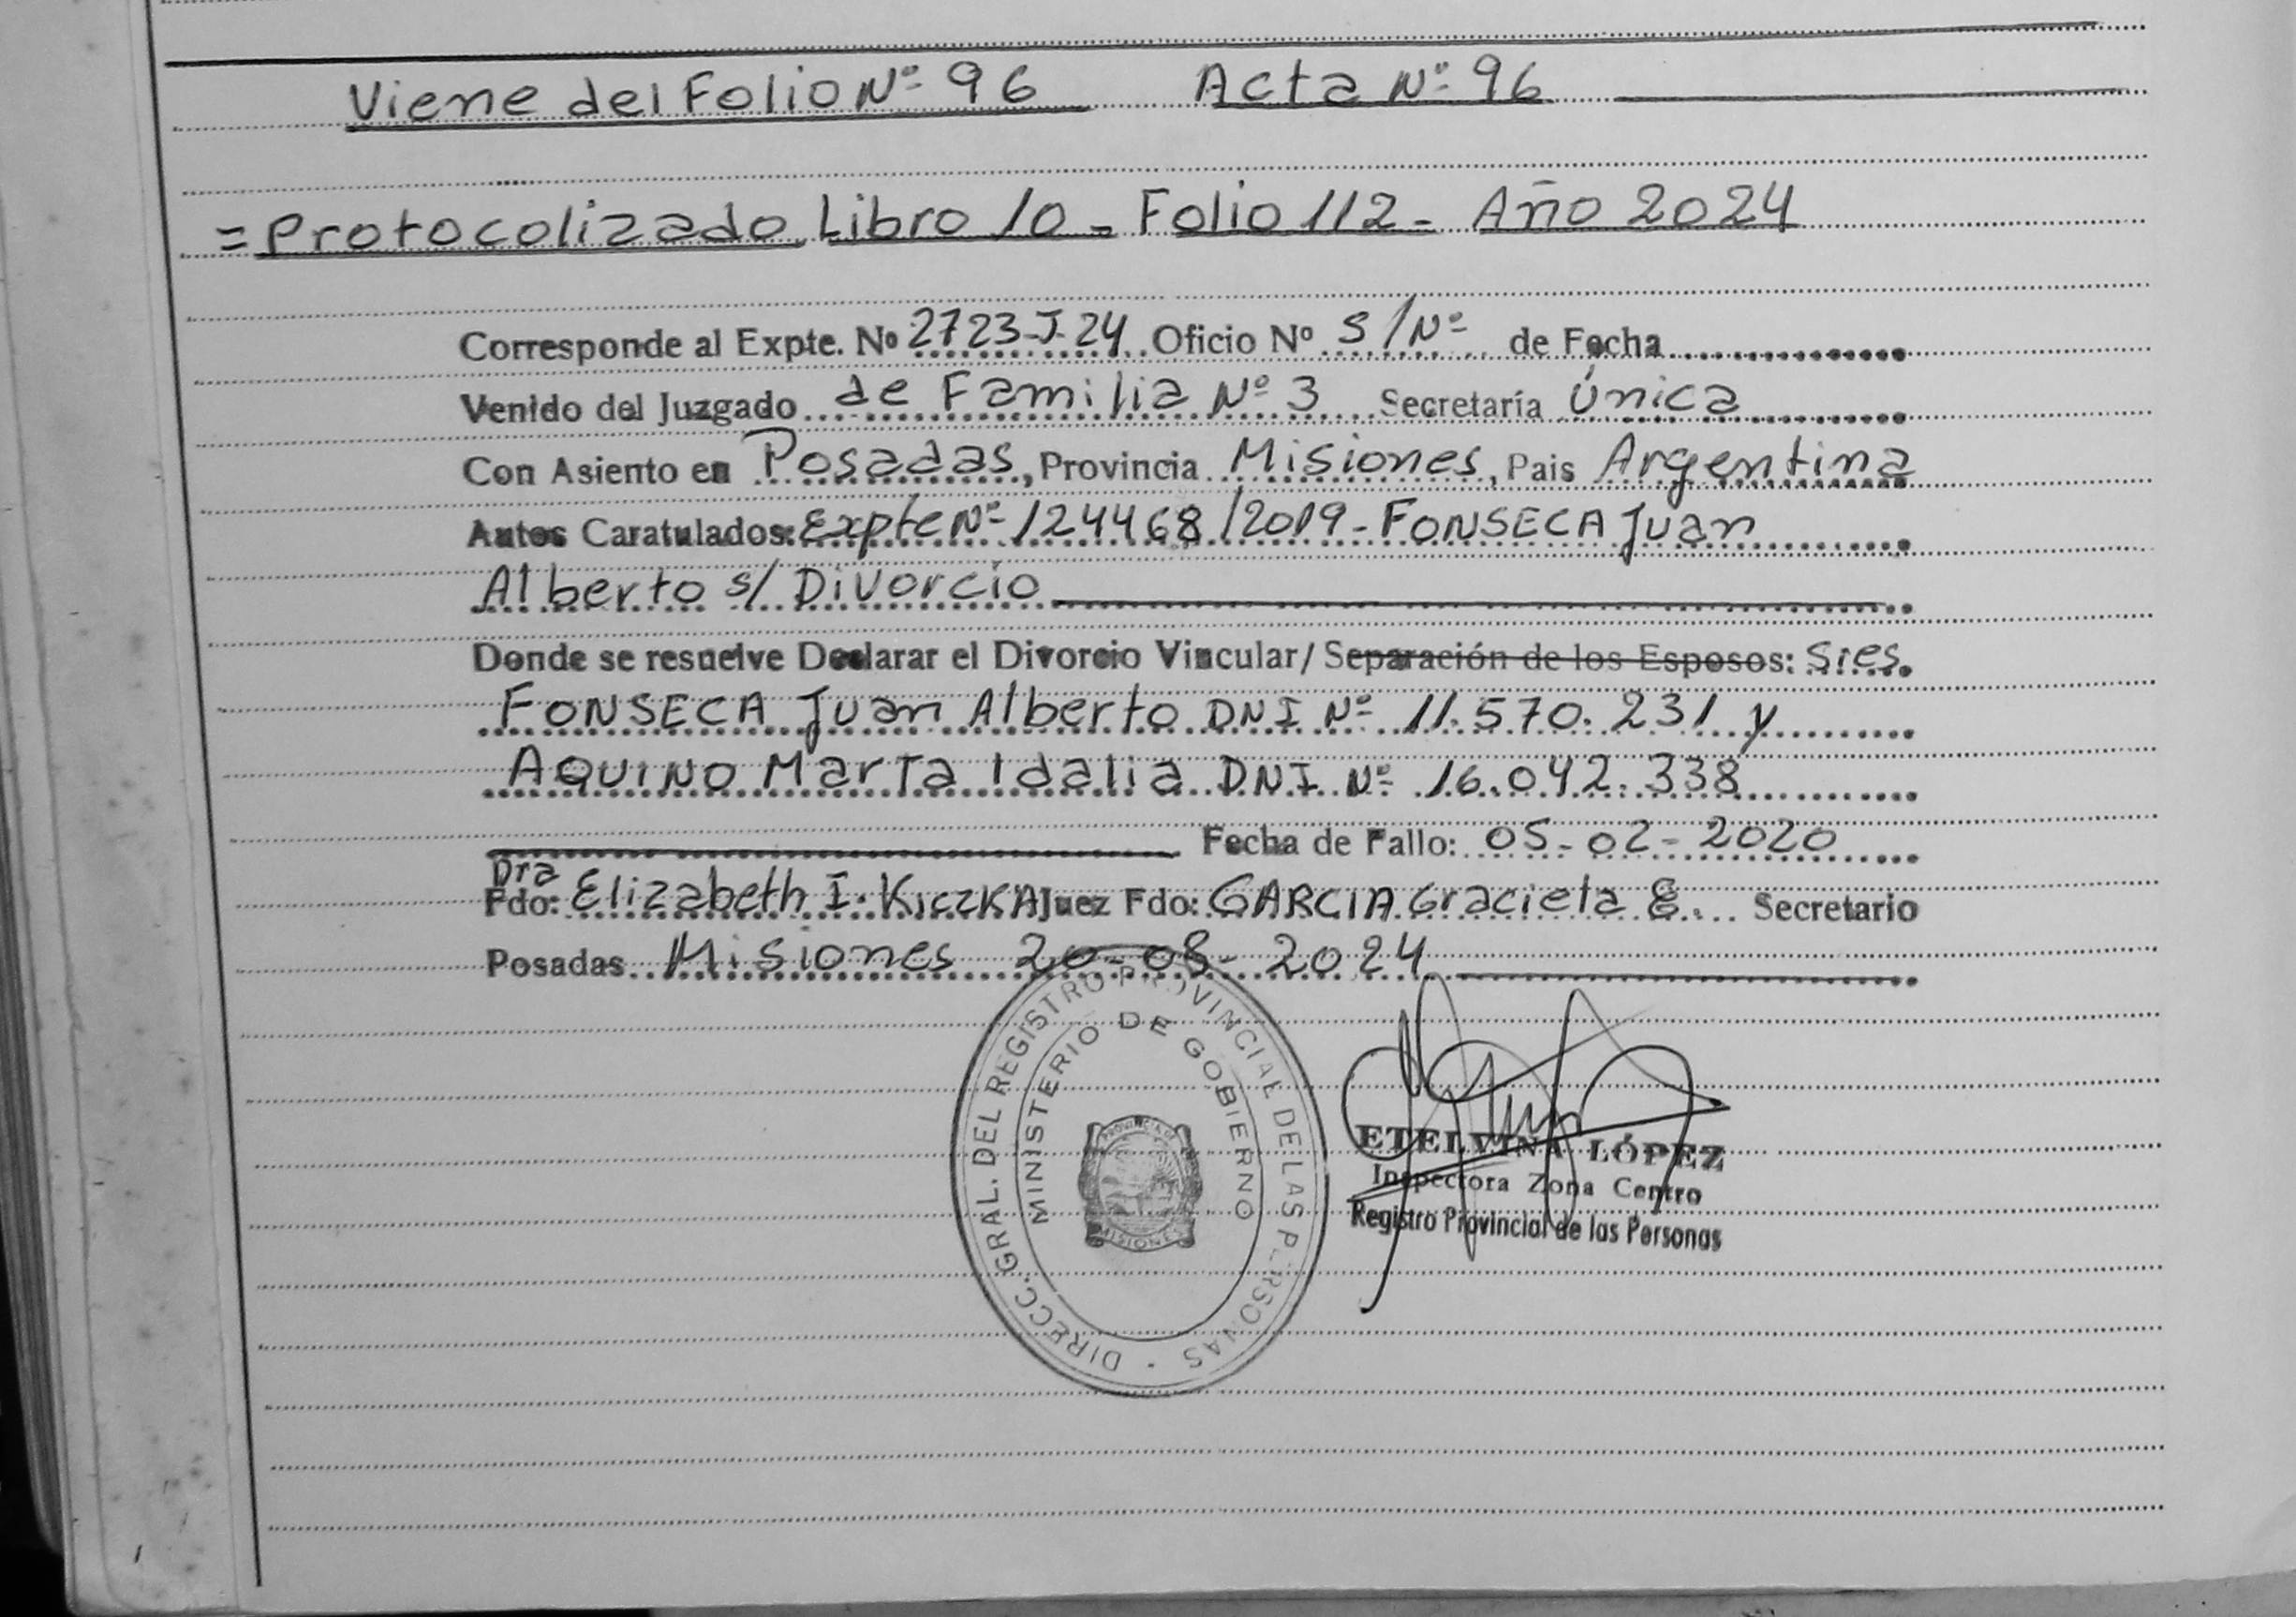 Viene del Folio Nº 96 Acta Nº 96
= Protocolizado Libro 10 - Folio 112 - Año 2024
Corresponde al Expte. Nº 2723-J-24 Oficio Nº S/Nº de Fecha
Venido del Juzgado de Familia Nº 3 Secretaría Única
Con Asiento en Posadas, Provincia Misiones, Pais Argentina
Autos Caratulados: Expte Nº 124468/2019 - FONSECA Juan
Alberto s/ Divorcio
Donde se resuelve Declarar el Divorcio Vincular/ Separación de los Esposos: Sres.
FONSECA Juan Alberto DNI Nº 11.570.231 y
AQUINO Marta Idalia DNI Nº 16.042.338
Fecha de Fallo: 05-02-2020
Dra
Fdo: Elizabeth I. KiczKA Juez Fdo: GARCIA Graciela E. Secretario
Posadas Misiones 20-08-2024
DIRECC. GRAL. DEL REGISTRO PROVINCIAL DE LAS PERSONAS
MINISTERIO DE GOBIERNO
PROVINCIA DE
MISIONES
ETELVINA LÓPEZ
Inspectora Zona Centro
Registro Provincial de las Personas